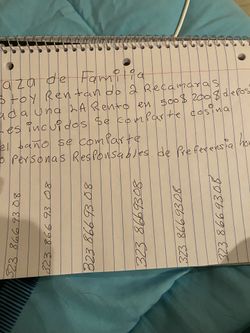 aza de Familia
stoy Rentando 2 Recamaras
ada una LA Rento en 500$ 200$ depos
les incuidos se comparte cosina
el baño se comparte
o personas Responsables de preferencia ho
323 866 9308
323 866 93 08
323 866 9308
323 8669308
323 866 9308
323 866 9308